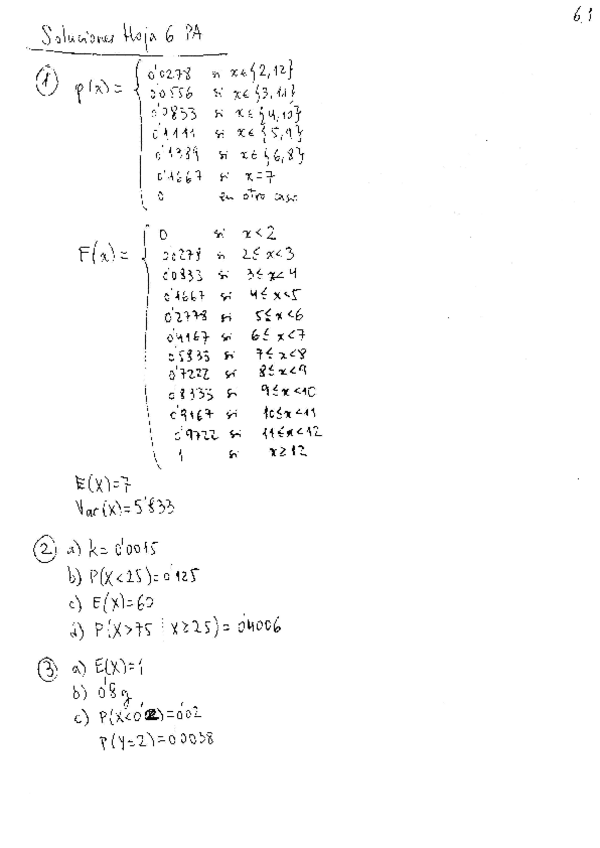 6.1
Soluciones Hoja 6 PA
① p(x) = 0'0278 si x∈{2,12}
0'0556 si x∈{3,11}
0'0833 si x∈{4,10}
0'1111 si x∈{5,9}
0'1389 si x∈{6,8}
0'1667 si x=7
0 en otro caso
F(x) = 0 si x<2
0'0278 si 2≤x<3
0'0833 si 3≤x<4
0'1667 si 4≤x<5
0'2778 si 5≤x<6
0'4167 si 6≤x<7
0'5833 si 7≤x<8
0'7222 si 8≤x<9
0'8333 si 9≤x<10
0'9167 si 10≤x<11
0'9722 si 11≤x<12
1 si x≥12
E(X)=7
Var(X)=5'833
② a) k=0'0015
b) P(X<25)=0'125
c) E(X)=60
d) P(X>75 | X≥25)=0'4006
③ a) E(X)=1
b) 0'8 g
c) P(X<0'2)=0'02
P(Y=2)=0'0038